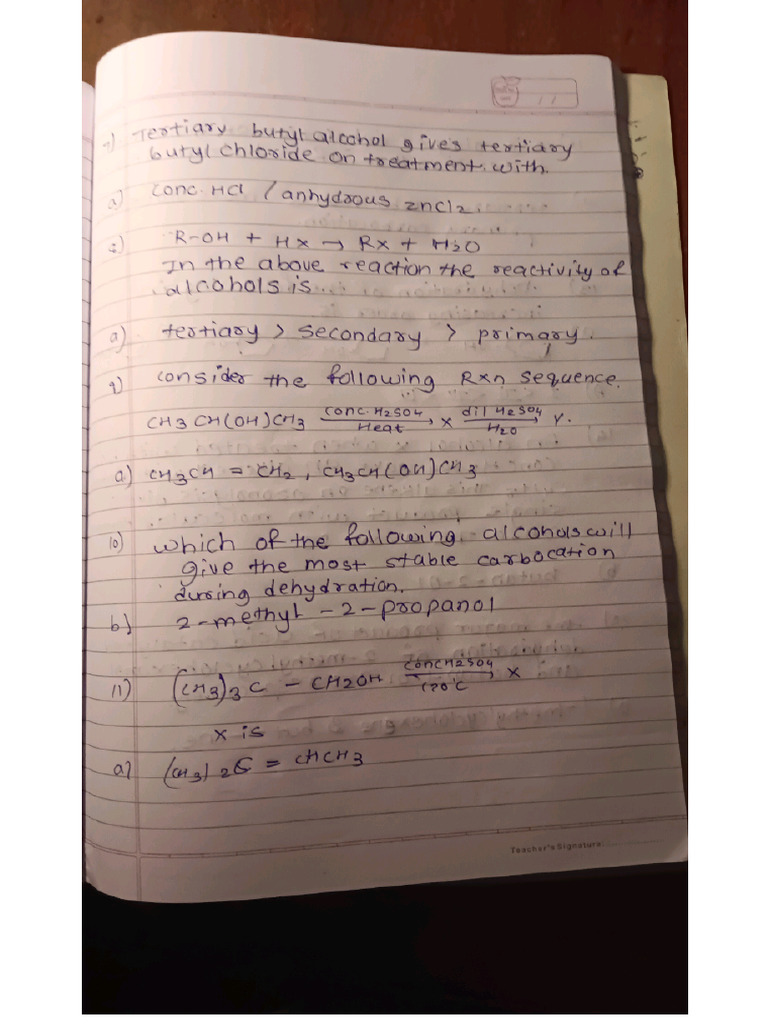 7) Tertiary butyl alcohol gives tertiary
butyl chloride on treatment with.
a) conc. HCl / anhydrous ZnCl2.
8) R-OH + HX → RX + H2O
In the above reaction the reactivity of
alcohols is
a) tertiary > secondary > primary.
9) consider the following Rxn sequence.
CH3CH(OH)CH3 conc. H2SO4 Heat → X dil H2SO4 H2O → Y.
a) CH3CH = CH2, CH3CH(OH)CH3
10) which of the following alcohols will
give the most stable carbocation
during dehydration.
b) 2-methyl-2-propanol
11) (CH3)3C - CH2OH conc H2SO4 170°C → X
X is
a) (CH3)2C = CHCH3
Teacher's Signature: